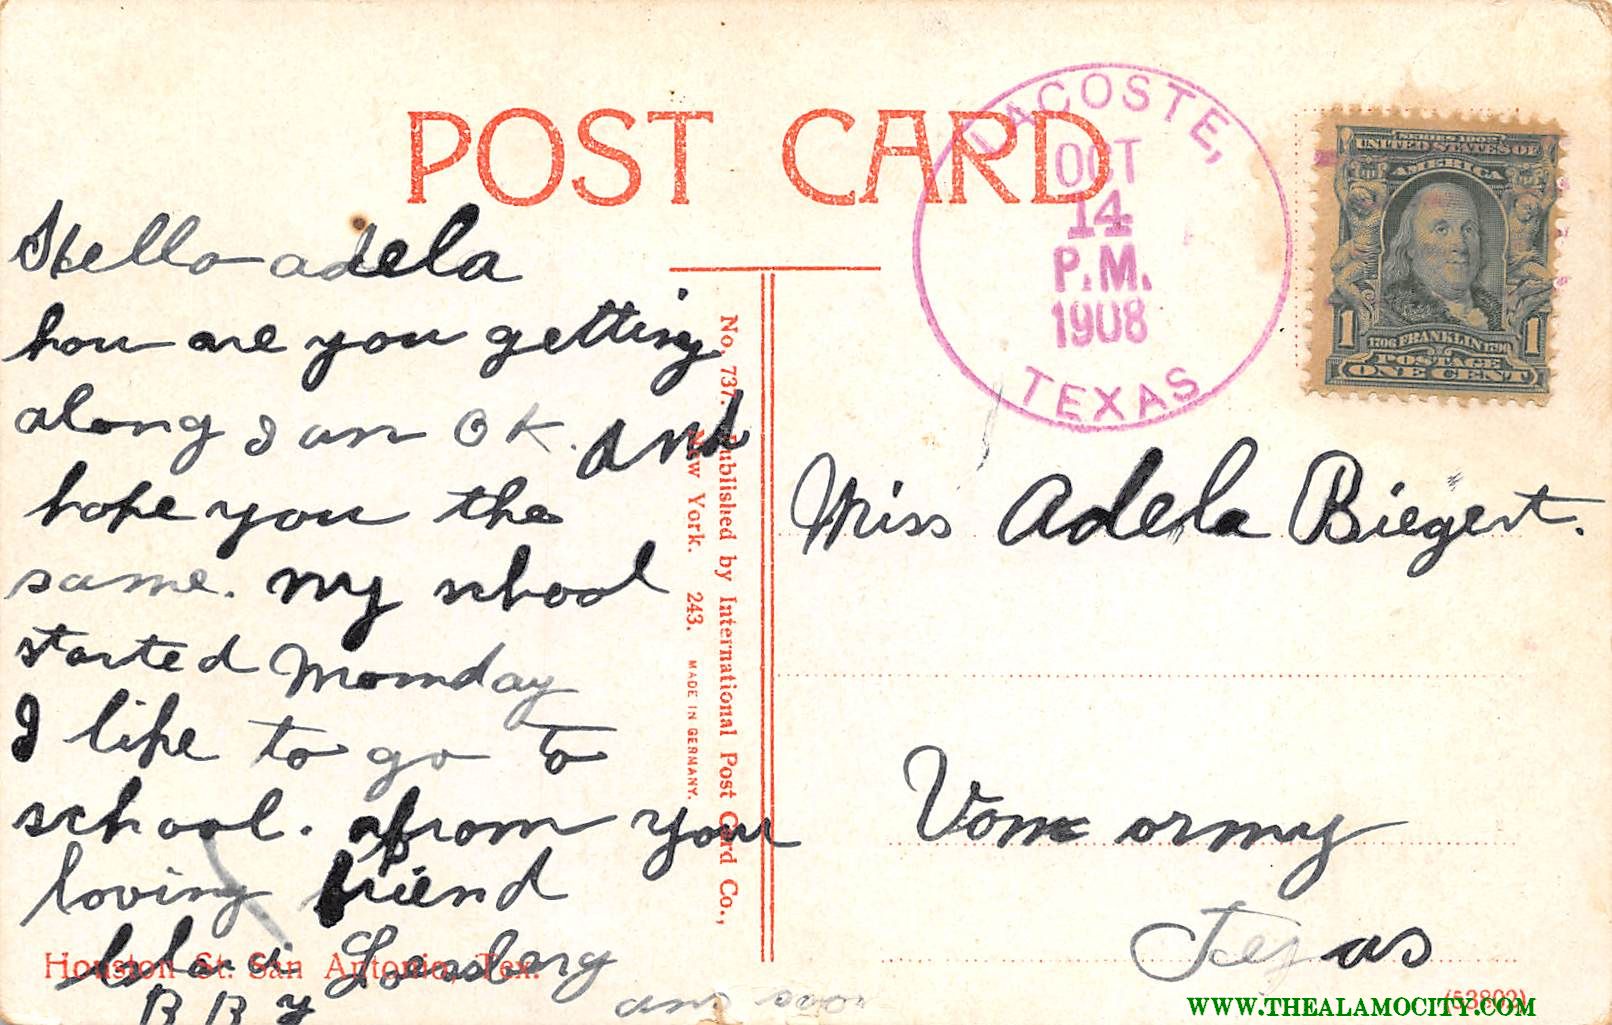 POST CARD
LACOSTE,
OCT
14
P.M.
1908
TEXAS
SERIES 1902
UNITED STATES OF
AMERICA
1 1
1706 FRANKLIN 1790
POSTAGE
ONE CENT
Hello adela
how are you getting
along I am OK. and
hope you the
same. my school
started Monday
I like to go to
school. from your
loving friend
B B Y
ans soon
No. 737. Published by International Post Card Co.,
New York. 243. MADE IN GERMANY.
Miss Adela Biegert.
Vom ormy
Texas
Houston St. San Antonio, Tex.
(53802)
WWW.THEALAMOCITY.COM